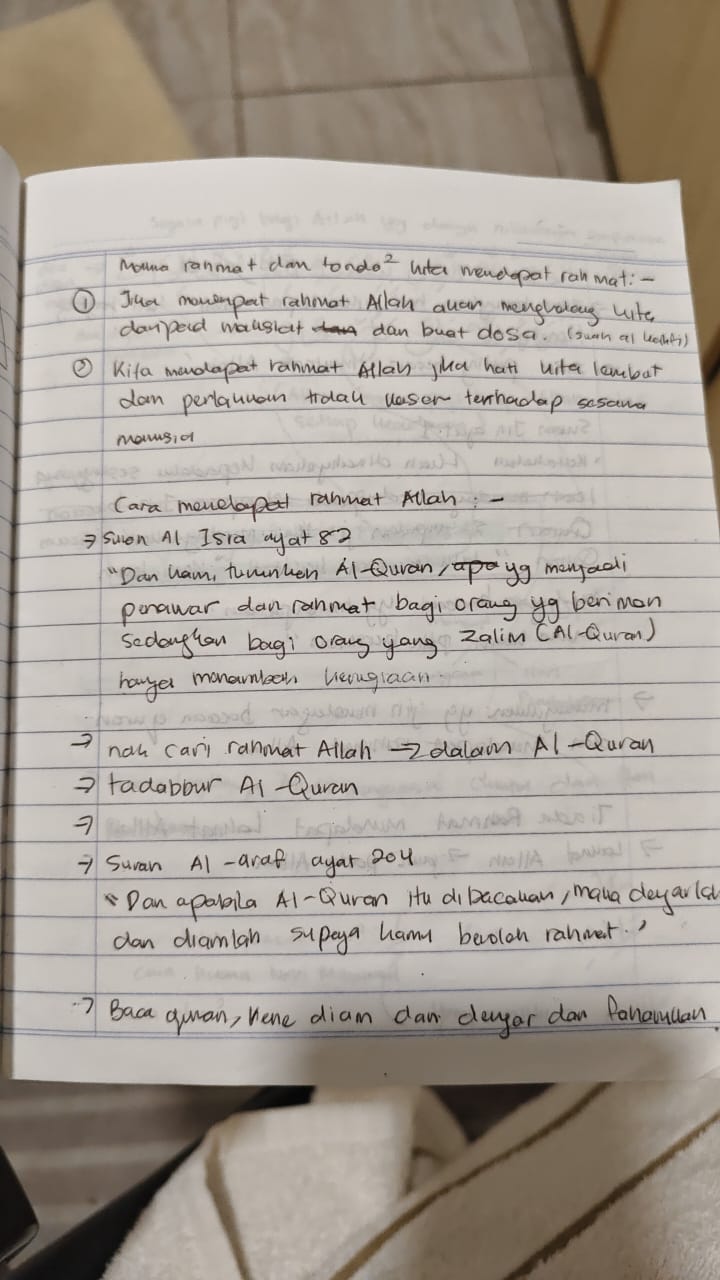 Makna rahmat dan tanda² kita mendapat rahmat:-
① Jika mendapat rahmat Allah akan menghalang kita
daripad maksiat dan buat dosa. (surah al kahfi)
② Kita mendapat rahmat Allah jika hati kita lembut
dan perlakuan tidak kasar terhadap sesama
manusia
Cara mendapat rahmat Allah :-
→ Suran Al Isra ayat 82
"Dan kami turunkan Al-Quran, apa yg menjadi
penawar dan rahmat bagi orang yg beriman
sedangkan bagi orang yang zalim (Al-Quran)
hanya menambah kerugiaan.
→ nak cari rahmat Allah → dalam Al-Quran
→ tadabbur Al-Quran
→
→ Suran Al-araf ayat 204
"Dan apabila Al-Quran itu dibacakan, maka dengarlah
dan diamlah supaya kamu beroleh rahmat."
→ Baca quran, kene diam dan dengar dan fahamkan